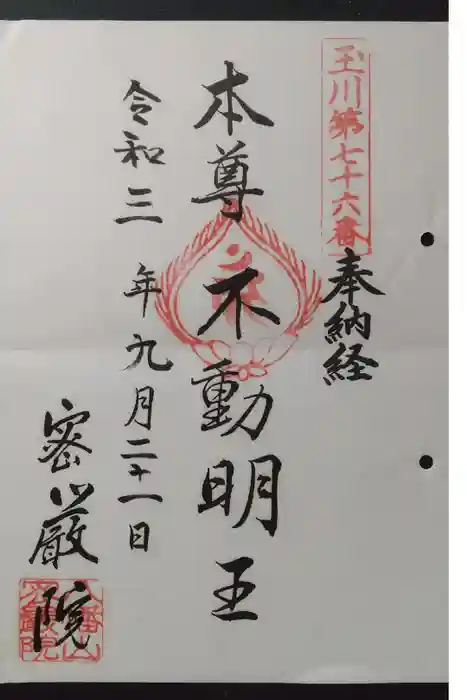 玉川第七十六番
奉納経
本尊不動明王
令和三年九月二十一日
密嚴院
八幡山
密嚴院